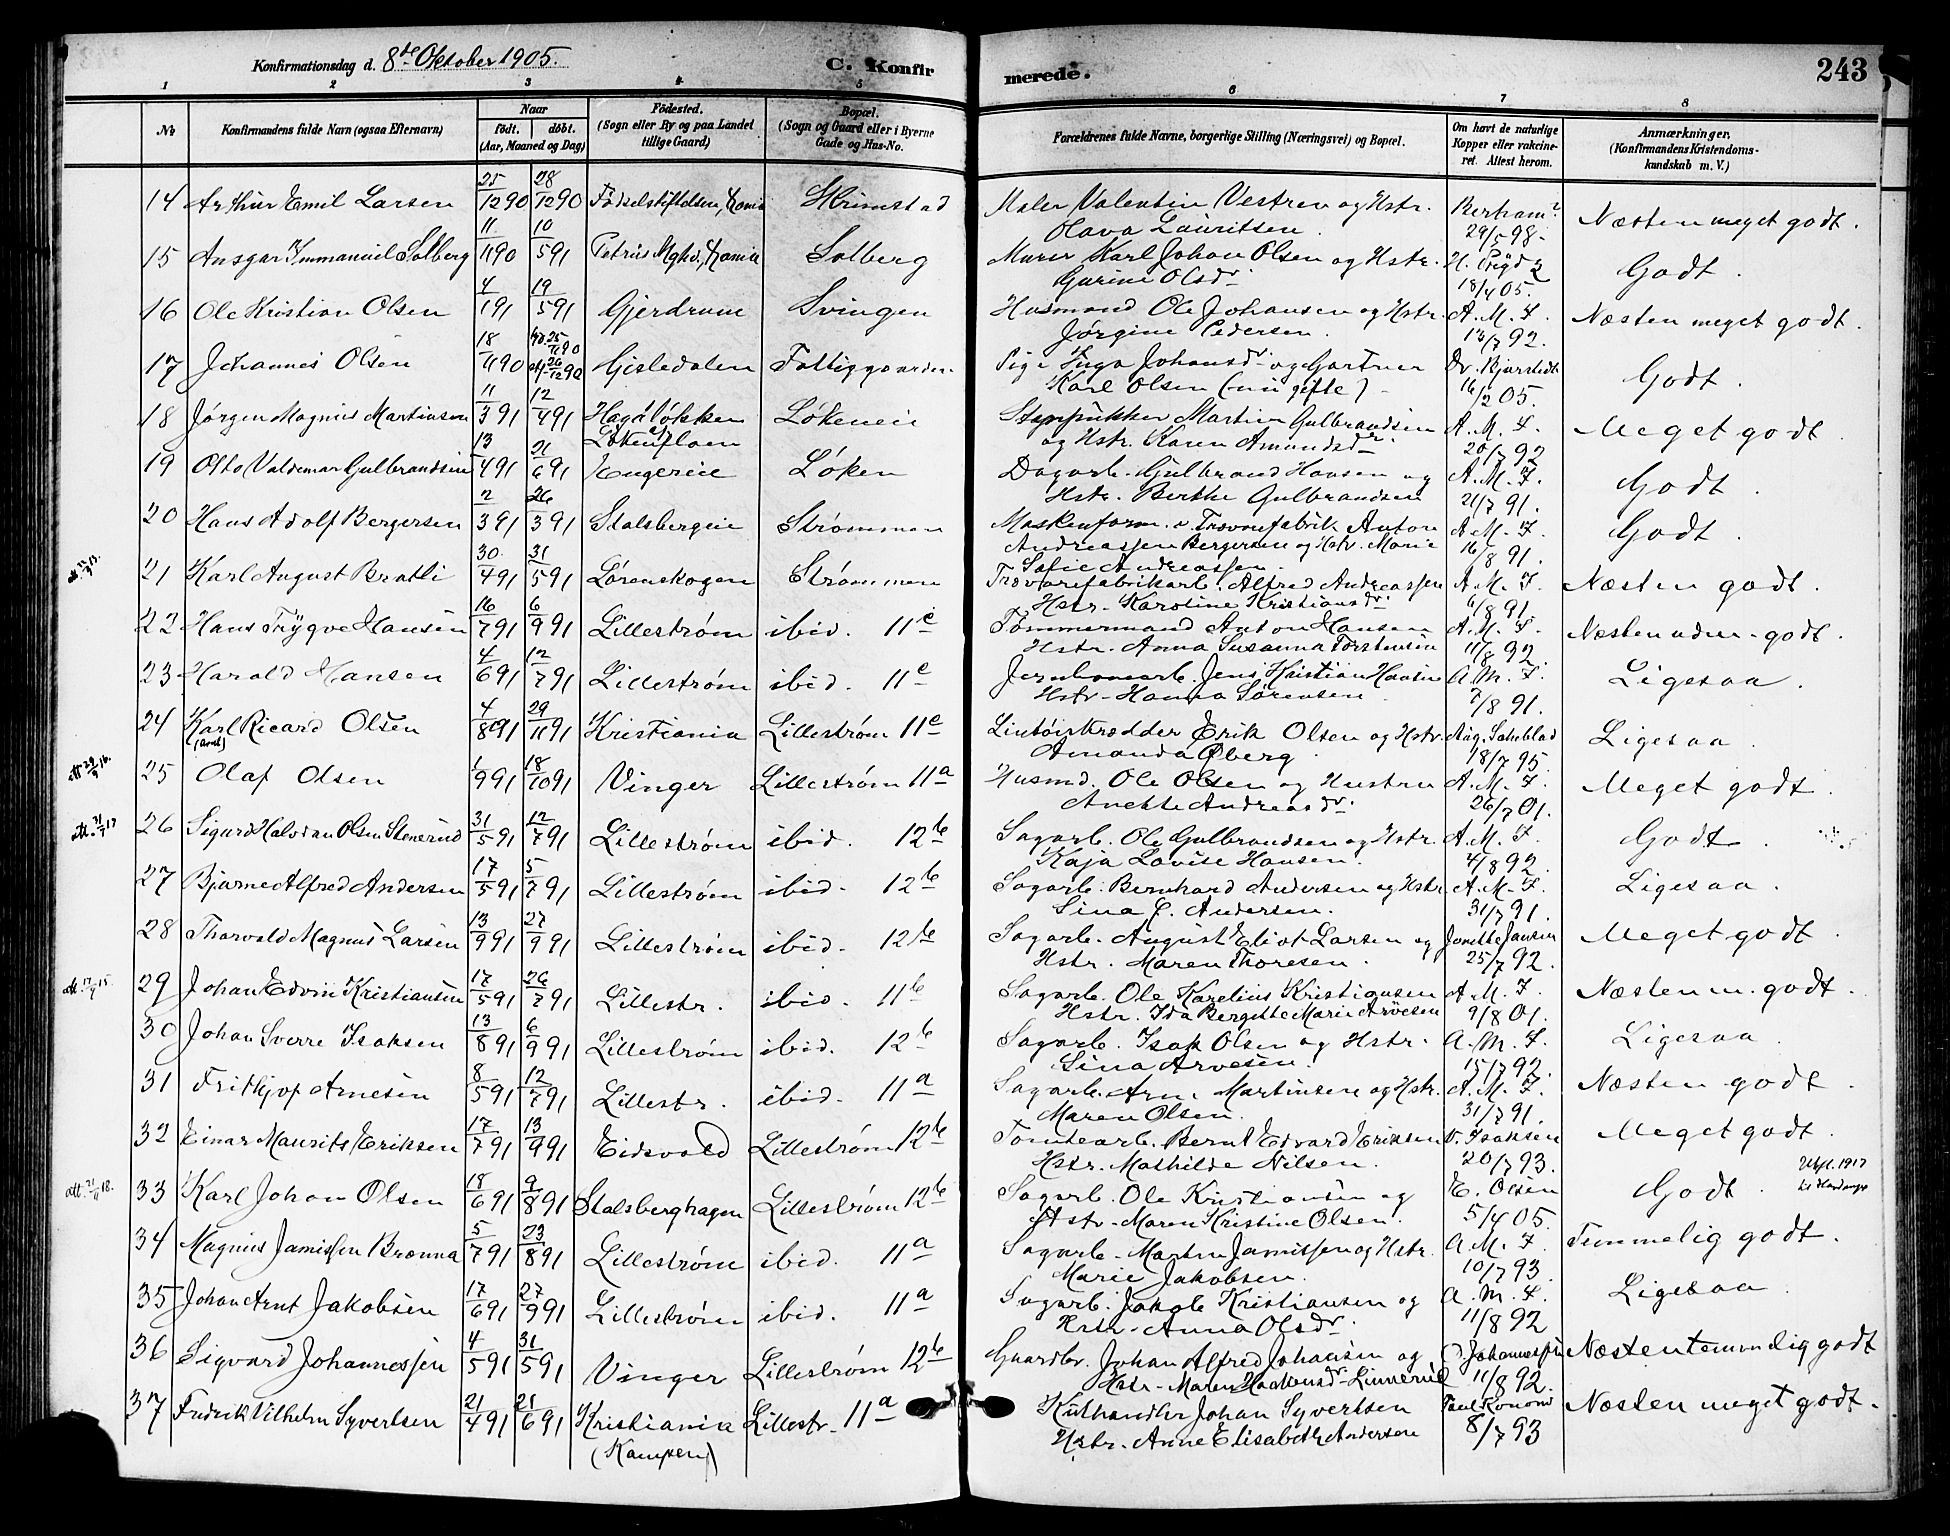 Konfirmationsdag d. 8de Oktober 1905.
C. Konfirmerede.
243
1 2 3 4 5 6 7 8
No
Konfirmandens fulde Navn (ogsaa Efternavn)
Naar
født. døbt.
(Aar, Maaned og Dag)
Fødested.
(Sogn eller By og paa Landet
tillige Gaard)
Bopæl.
(Sogn og Gaard eller i Byerne
Gade og Hus-No.
Forældrenes fulde Navne, borgerlige Stilling (Næringsvei) og Bopæl.
Om havt de naturlige
Kopper eller vakcine-
ret. Attest herom.
Anmærkninger.
(Konfirmandens Kristendoms-
kundskab m. V.)
14 Arthur Emil Larsen 25/12 90 28/12 90 Fødselsstiftelsen, Krania Skrimstad Maler Valentin Vestren og Hstr. Bertram Næsten meget godt.
Olava Lauritsen. 29/5 98.
15 Ansgar Immanuel Solberg 11/11 90 10/5 91 Petrus Mghd., Krania Solberg Murer Karl Johan Olsen og Hstr. Godt.
Gurine Olsdr. 18/4 05.
16 Ole Kristian Olsen 4/1 91 19/5 91 Gjerdrum Svingen Husmand Ole Johansen og Hstr. A. M. F. Næsten meget godt.
Jørgine Pedersen. 13/7 92.
17 Johannes Olsen 18/11 90 25/11 90 26/12 90 Gisledalen Fattiggaarden Pige Inga Johansdr. og Gartner Dr. Bjørstedt Godt.
Karl Olsen (nu gifte) 16/2 05.
18 Jørgen Magnus Martinsen 11/3 91 12/4 91 Haga Løkken Løkeneie Martin Gulbrandsen A. M. F. Meget godt.
og Hstr. Karen Amundsdr. 20/7 92
19 Otto Valdemar Gulbrandsen 13/4 91 21/6 91 Engereie Løken Dagarb. Gulbrand Hansen og A. M. F. Godt.
Hstr. Berthe Gulbrandsen 21/7 91.
20 Hans Adolf Bergersen 2/3 91 26/3 91 Stalsbergeie Strømmen Maskenform. v. Trævarefabrik Anton A. M. F. Godt.
Andreassen Bergersen og Hstr. Marie 16/8 91.
Sofie Andreassen.
21 Karl August Bratli 30/4 91 31/5 91 Lørenskogen Strømmen Trævarefabrikarb. Alfred Andreassen A. M. F. Næsten godt.
Hstr. Karoline Kristiansdr. 6/8 91.
22 Hans Trygve Hansen 16/7 91 6/9 91 Lillestrøm ibid. 11c Tømmermand Anton Hansen A. M. F. Næsten udm. godt.
Hstr. Anna Susanna Torstensen 11/8 92.
23 Harald Hansen 4/6 91 12/7 91 Lillestrøm ibid. 11c Jernbanearb. Jens Kristian Hansen A. M. F. Ligesaa.
Hstr. Hanna Sørensen 7/8 91.
24 Karl Ricard Olsen 4/8 91 29/11 91 Kristiania Lillestrøm 11c Lintøistrædder Erik Olsen og Hstr. Aug. Sahlblad Ligesaa.
Amanda Øberg 18/7 95.
25 Olaf Olsen 1/9 91 18/10 91 Vinger Lillestrøm 11a Husmd. Ole Olsen og Hustru A. M. F. Meget godt.
Anette Andreasdr. 26/7 01.
26 Sigurd Halvdan Olsen Stenerud 31/5 91 12/7 91 Lillestrøm ibid. 12b Sagarb. Ole Gulbrandsen og Hstr. A. M. F. Godt.
Kaja Lovise Hansen. 4/8 92.
27 Bjarne Alfred Andersen 17/5 91 5/7 91 Lillestrøm ibid. 12b Sagarb. Bernhard Andersen og Hstr. A. M. F. Ligesaa.
Lina J. Andersen. 31/7 91.
28 Thorvald Magnus Larsen 13/9 91 27/9 91 Lillestrøm ibid. 12b Sagarb. August Eliot Larsen og Jonette Jansen Meget godt.
Hstr. Maren Thoresen. 25/7 92.
att. 17/9 15. 29 Johan Edvin Kristiansen 17/5 91 26/7 91 Lillestr. ibid. 11b Sagarb. Ole Karelius Kristiansen A. M. F. Næsten m. godt.
Hstr. Ida Bergitte Marie Arvesen 9/8 01.
30 Johan Sverre Isaksen 13/8 91 6/9 91 Lillestrøm ibid. 12b Sagarb. Isak Olsen og Hstr. A. M. F. Ligesaa.
Lina Arvesen. 15/7 92.
31 Frithjof Arnesen 8/5 91 12/7 91 Lillestr. ibid. 11a Sagarb. Arne Martinsen og Hstr. A. M. F. Næsten godt.
Maren Olsen. 31/7 91.
32 Einar Maurits Eriksen 17/7 91 13/9 91 Eidsvold Lillestrøm 12b Tomtearb. Bernt Edvard Eriksen V. Isaksen Meget godt.
Hstr. Mathilde Nilsen. 20/7 93.
33 Karl Johan Olsen 18/6 91 9/8 91 Stalsberghagen Lillestrøm 12b Sagarb. Ole Kristiansen og E. Olsen Godt. 1917
Hstr. Maren Kristine Olsen. 5/4 05.
34 Magnus Jamissen Brænna 5/7 91 23/8 91 Lillestrøm ibid. 11a Sagarb. Martin Jamissen og Hstr. A. M. F. Temmelig godt.
Marie Jakobsen. 10/7 93.
35 Johan Arnt Jakobsen 17/6 91 27/9 91 Lillestrøm ibid. 11a Sagarb. Jakob Kristiansen og A. M. F. Ligesaa.
Hstr. Anna Olsdr. 11/8 92
36 Sigvard Johannessen 4/5 91 31/5 91 Vinger Lillestrøm 12b Gaardbr. Johan Alfred Johansen og Johannessen Næsten temmelig godt
Hstr. Maren Haakensdr. Linnerud 11/8 92.
37 Fredrik Vilhelm Syvertsen 21/4 91 21/6 91 Kristiania Lillestr. 11a Kulhandler Johan Syvertsen Paul Næsten meget godt.
(Kampen) Hstr. Anne Elisabeth Andersen 8/7 93